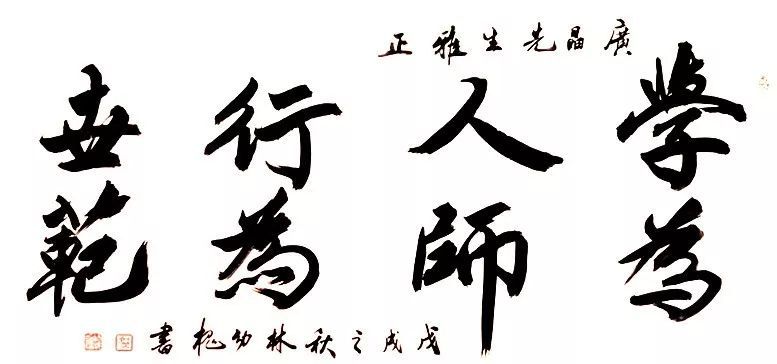 廣晶先生雅正
學為
人師
行為
世範
戊戌之秋林幼書